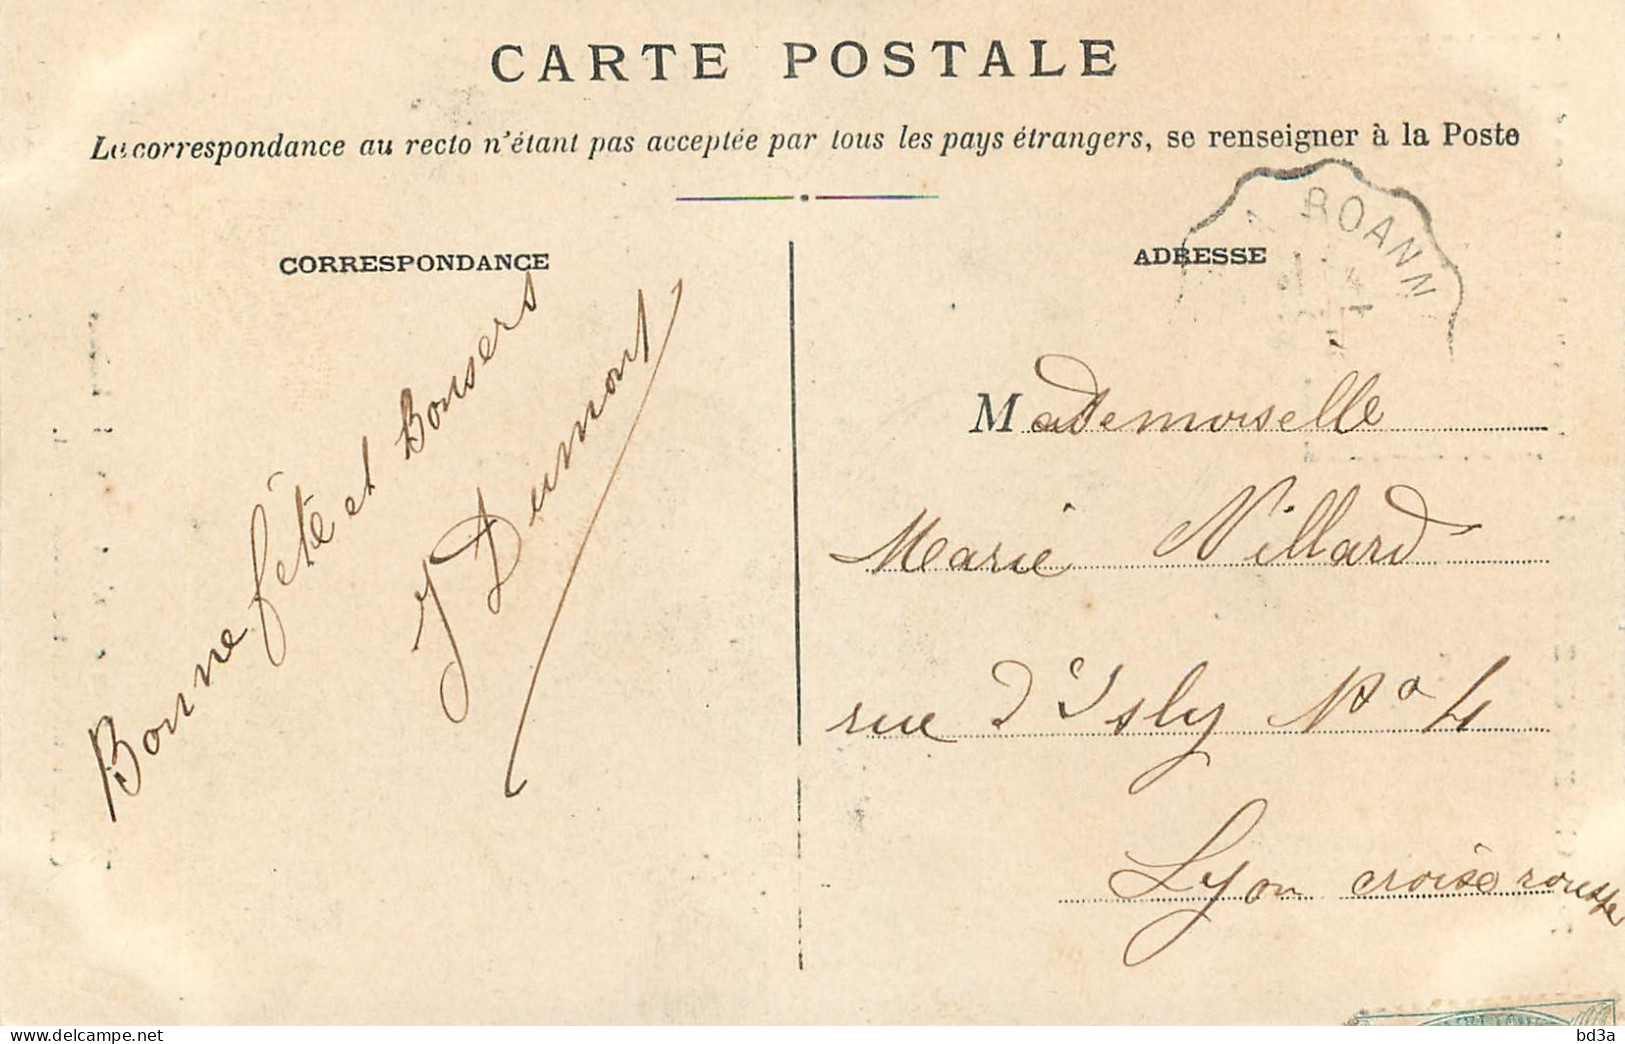 CARTE POSTALE
La correspondance au recto n'étant pas acceptée par tous les pays étrangers, se renseigner à la Poste
CORRESPONDANCE
Bonne fête et Bonsers
J Dumont
ADRESSE
ROANN
Mademoiselle
Marie Villard
rue d'Isly No 4
Lyon croise rousse
delcampe.net
bd3a